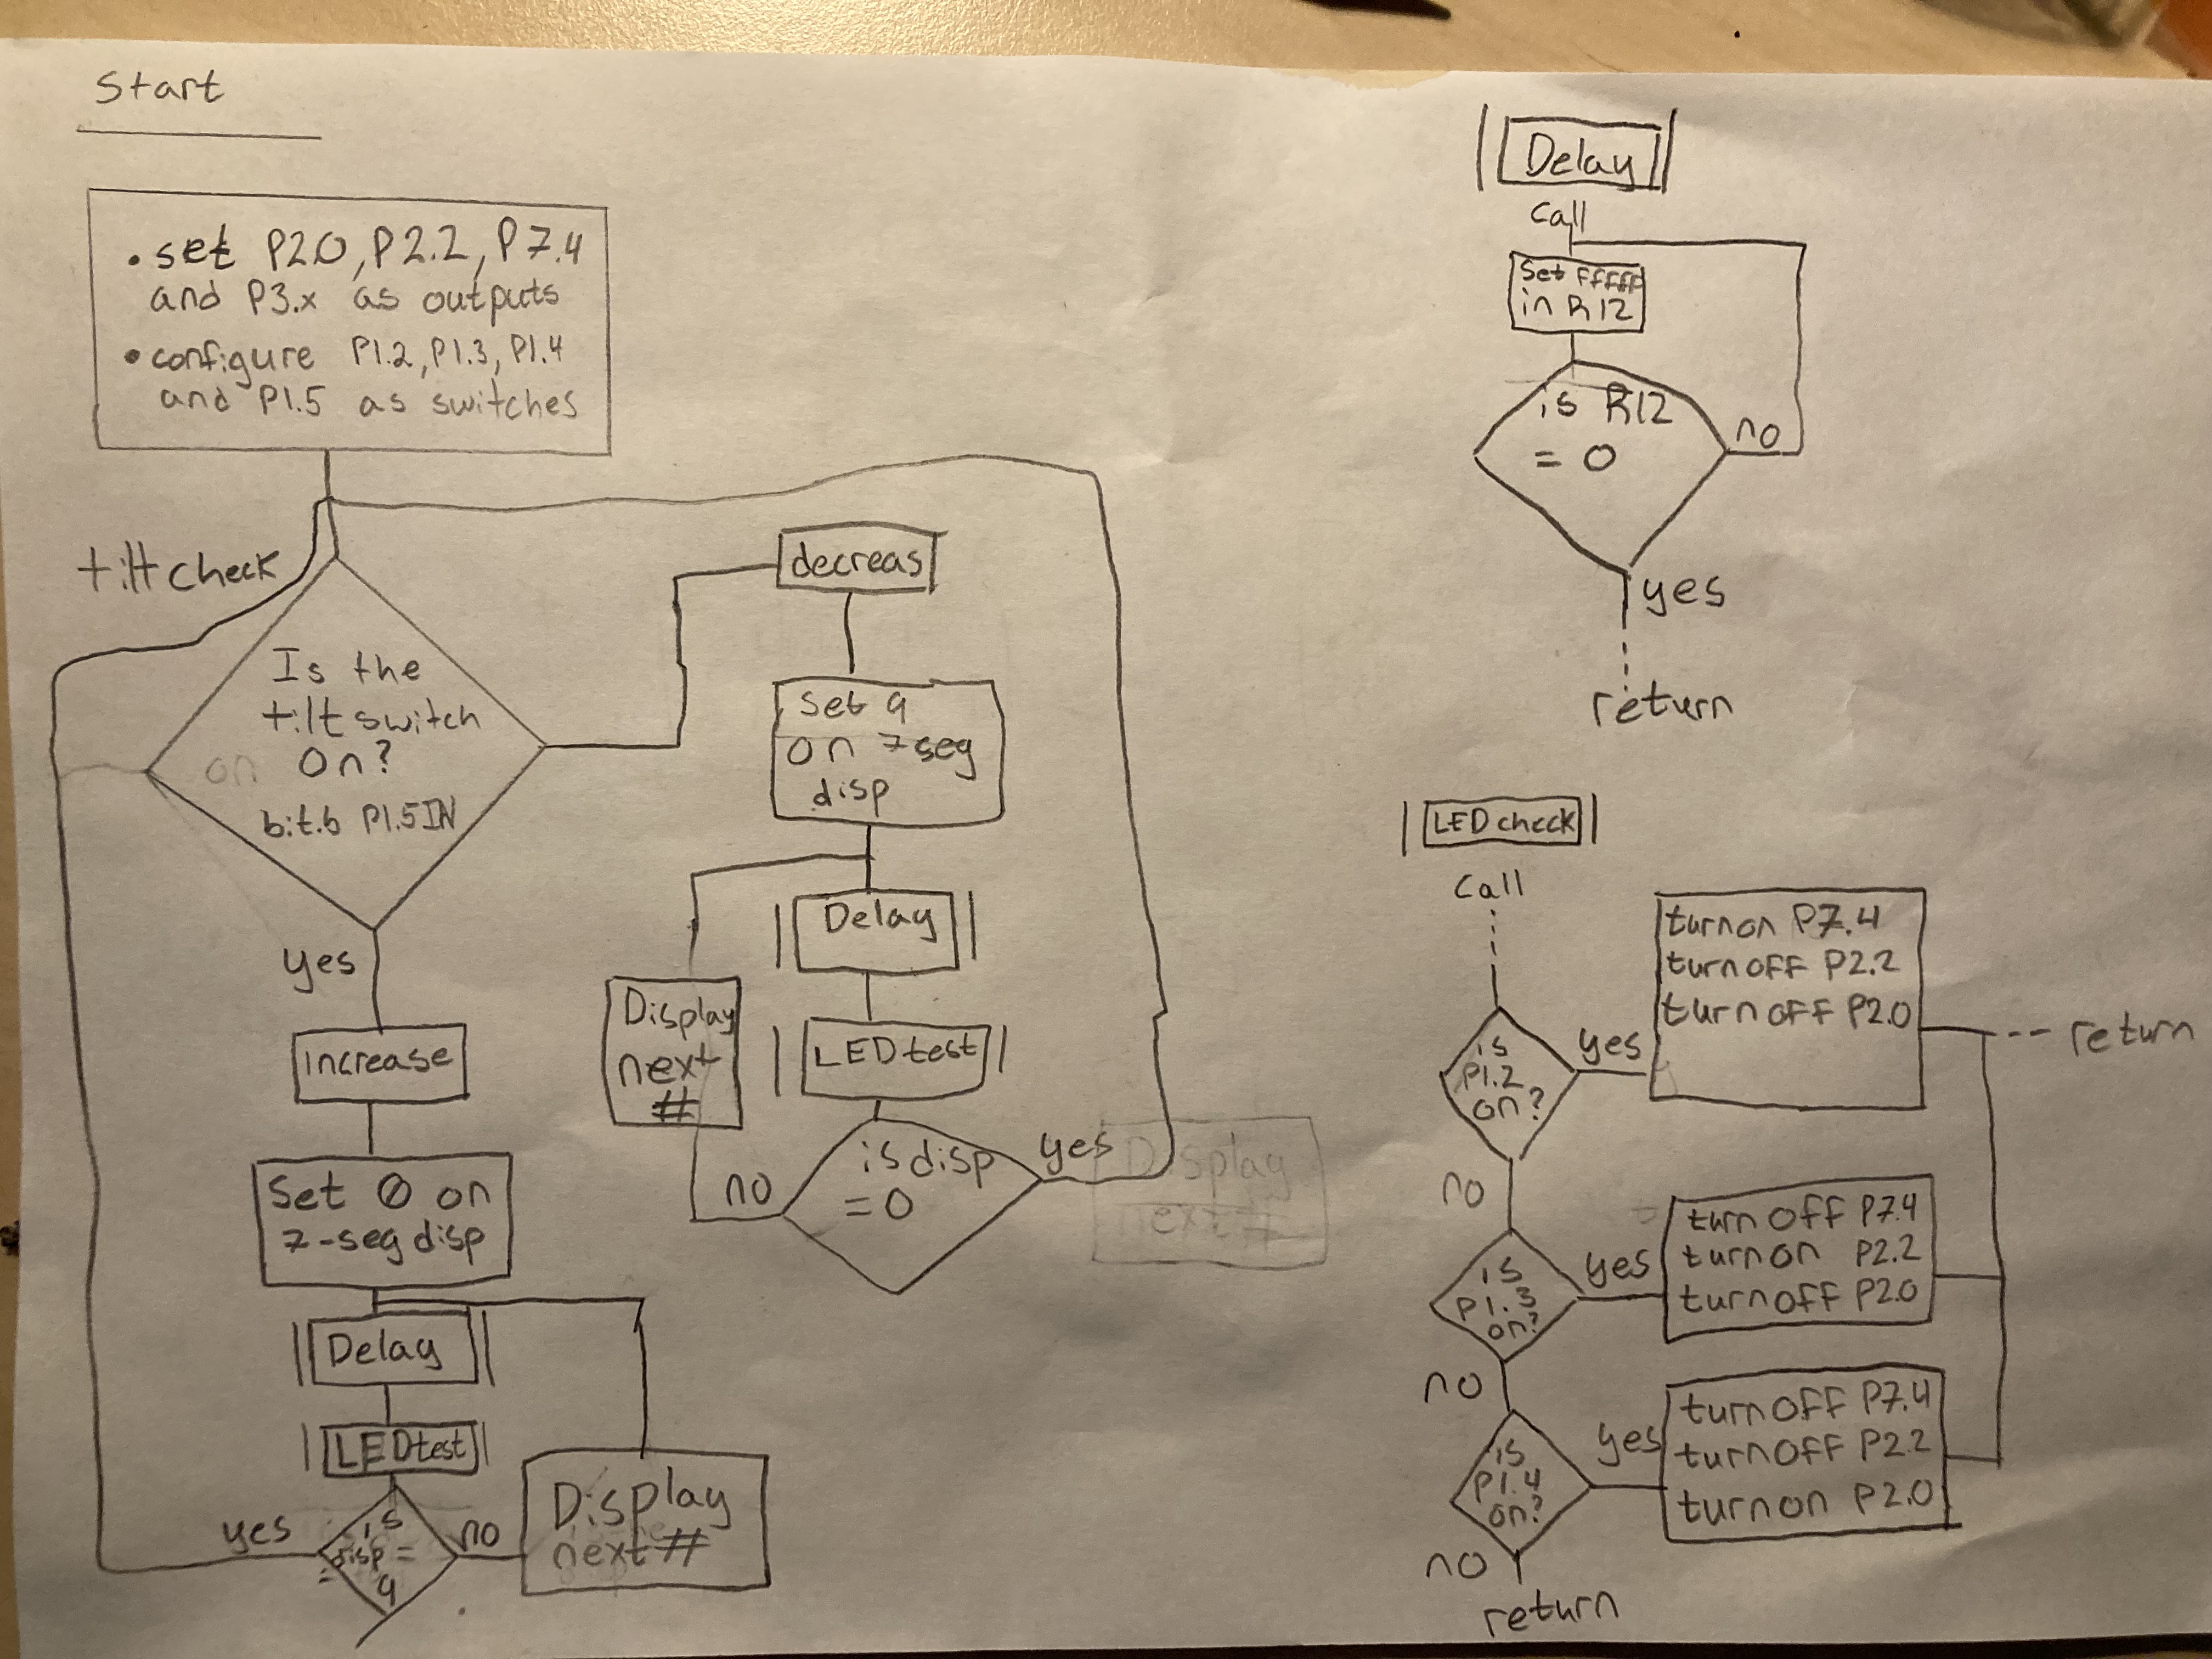 Start
• set P2.0, P2.2, P7.4
and P3.x as outputs
• configure P1.2, P1.3, P1.4
and P1.5 as switches
tiltcheck
Is the
tilt switch
On?
on
bit.b P1.5IN
yes
increase
Set 0 on
7-seg disp
Delay
LEDtest
is
disp =
9
yes
no
Display
next #
decreas
Set 9
on 7seg
disp
Delay
LEDtest
is disp
= 0
no
yes
Display
next
#
Display
next
Delay
call
Set FFFFF
in R12
is R12
= 0
no
yes
return
LED check
call
is
P1.2
on?
yes
turn on P7.4
turn off P2.2
turn off P2.0
return
no
is
P1.3
on?
yes
turn off P7.4
turn on P2.2
turn off P2.0
no
is
P1.4
on?
yes
turn off P7.4
turn off P2.2
turn on P2.0
no
return